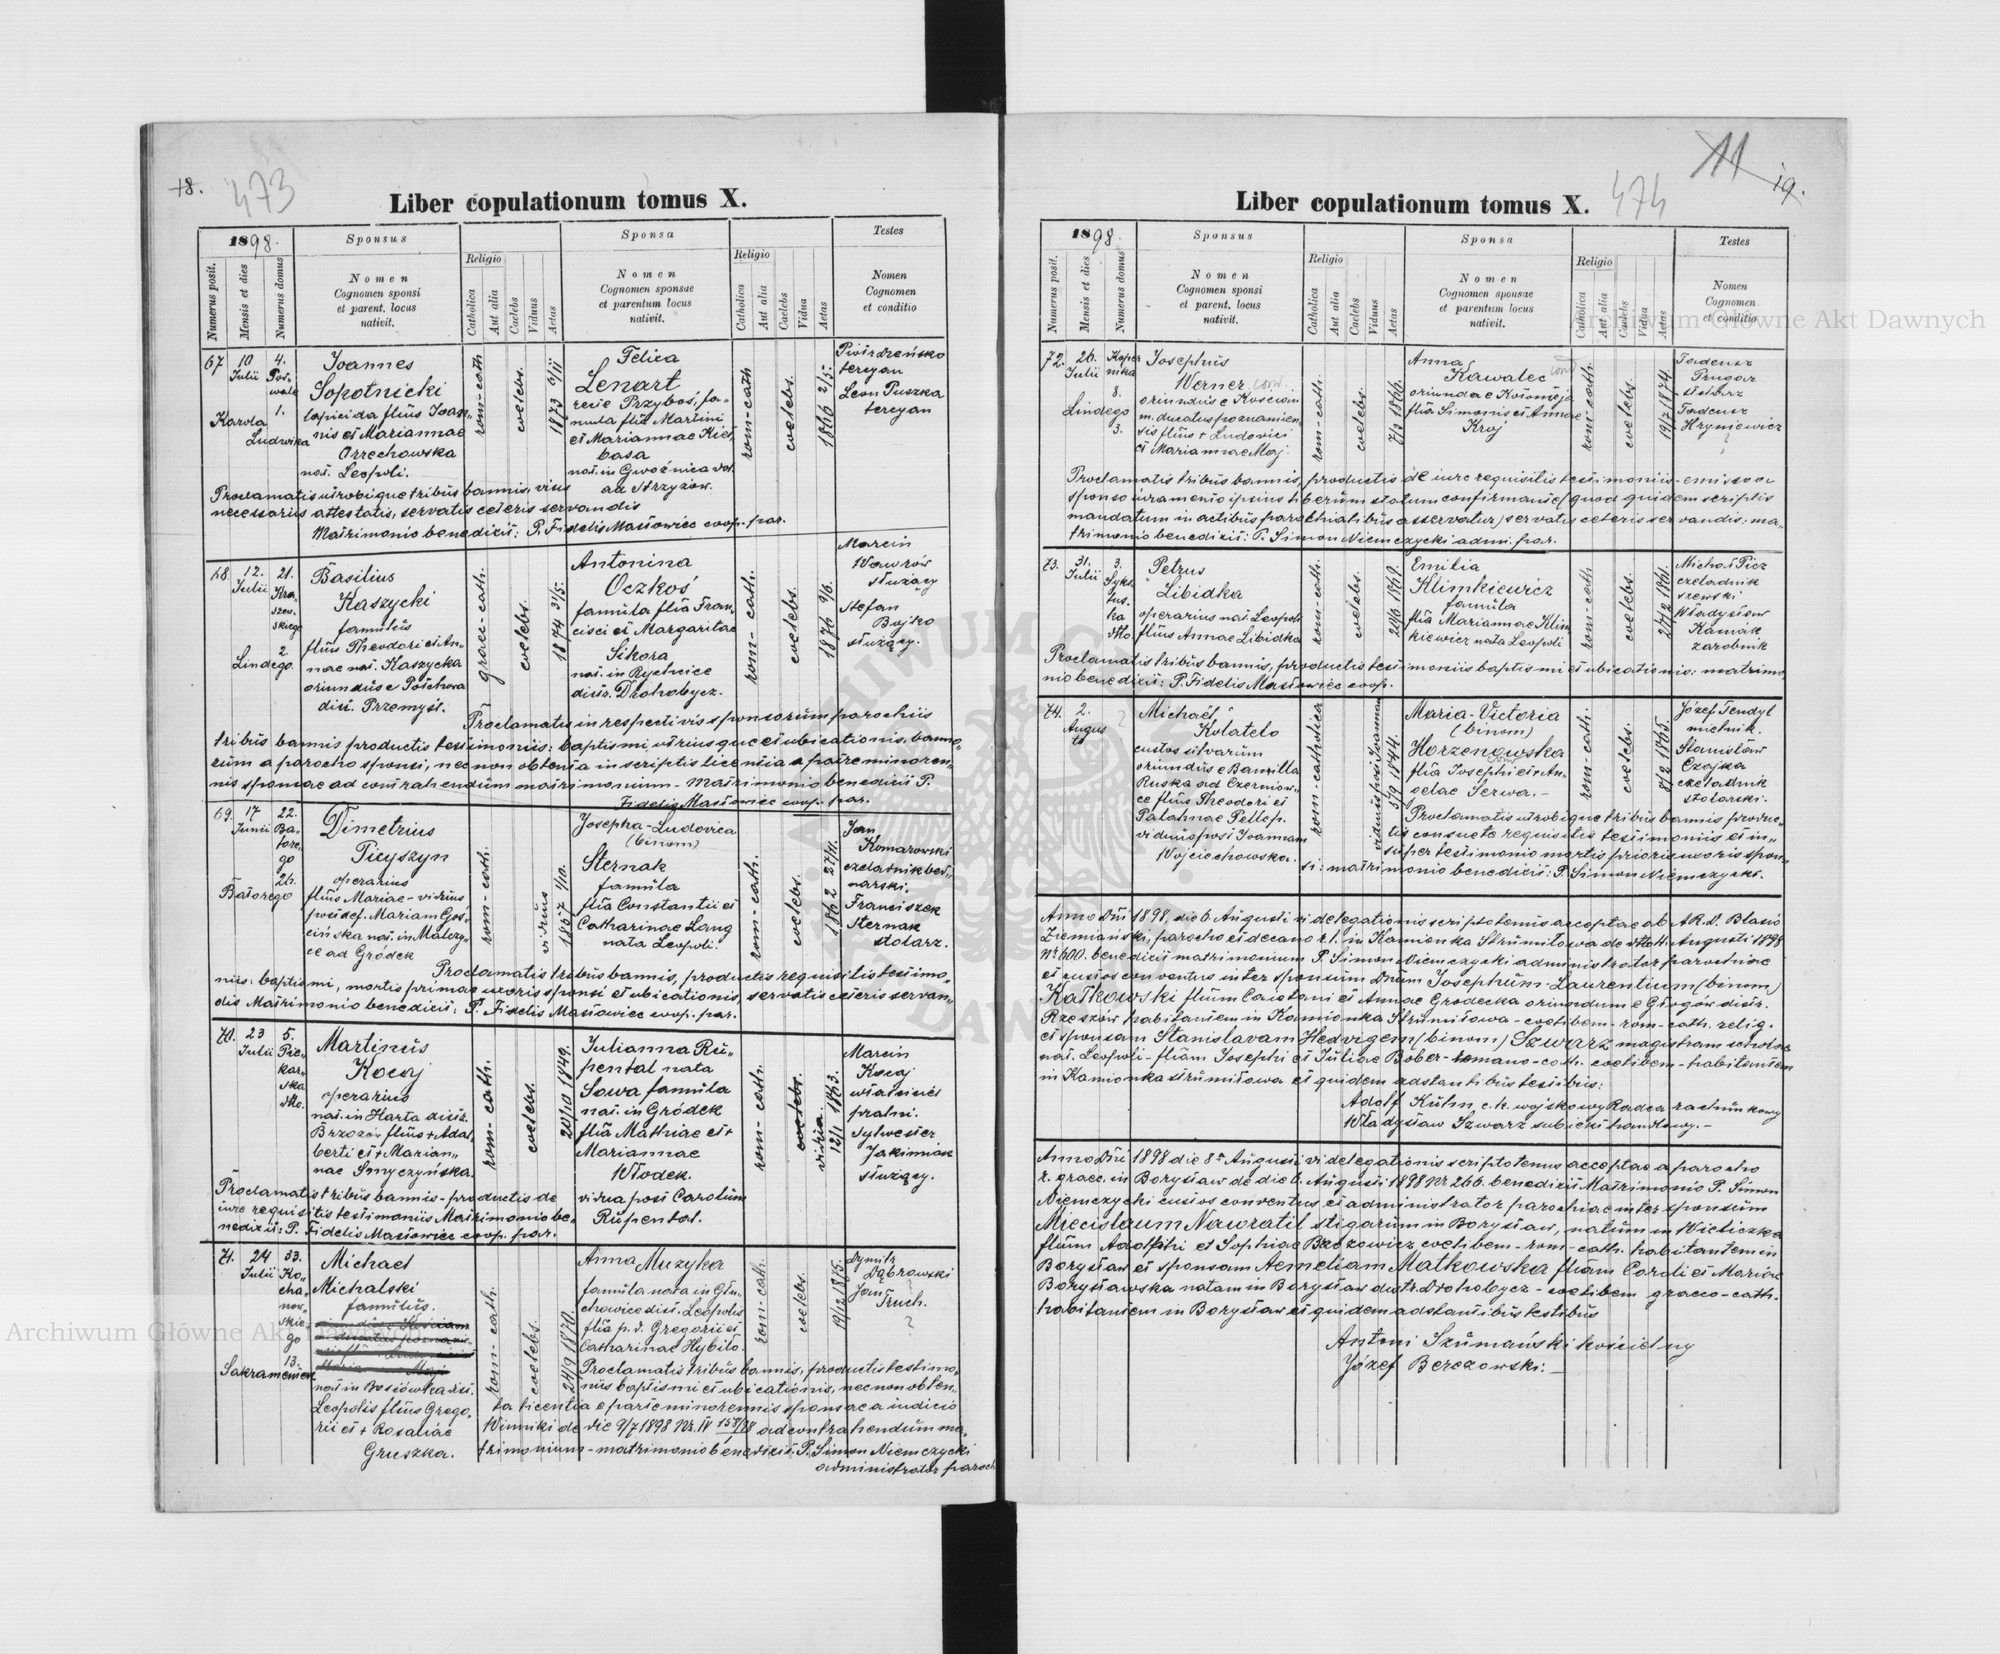 18.
473
Liber copulationum tomus X.
1898.
Sponsus
Sponsa
Testes
Numerus posit.
Mensis et dies
Numerus domus
Nomen
Cognomen sponsi
et parent. locus
nativit.
Religio
Catholica
Aut alia
Caelebs
Viduus
Aetas
Nomen
Cognomen sponsae
et parentum locus
nativit.
Religio
Catholica
Aut alia
Caelebs
Vidua
Aetas
Nomen
Cognomen
et conditio
67
10
Julii
4.
1.
Karola
Ludwika
Joannes
Sopotnicki
lapicida filius Joan-
nis et Mariannae
Orzechowska
nat. Leopoli.
rom-cath
coelebs.
1873 6/11
Felica
Lenart
recte Przyboś, fa-
mula filia Martini
et Mariannae Kieł,
basa
nat. in Gwoźnica
ad Strzyżow.
rom-cath
coelebs.
1866 2/5.
tercyan
Leon Puszka
tercyan
Proclamatis utrobique tribus bannis, visis
necessariis attestatis, servatis ceteris servandis
Matrimonio benedixit: P. Fidelis Masłowiec coop. par.
68.
12.
Julii
21.
Kra-
szew-
skiego
2
Lindego.
Basilius
Kaszycki
famulus
filius Theodori et An-
nae nat. Kaszycka
oriundus e
distr. Przemysl.
graec-cath.
coelebs.
1874 31/5.
Antonina
Oczkoś
famula filia Fran-
cisci et Margaritae
Sikora
nat. in Rychcice
distr. Drohobycz.
rom-cath.
coelebs.
1876 9/6.
Marcin
Wawrów
służący
Stefan
Bojko
służący.
Proclamatis in respectivis sponsorum parochiis
tribus bannis productis testimoniis: baptismi utriusque et ubicationis, banno-
rum a parocho sponsi, nec non obtenta in scriptis licentia a patre minoren-
nis sponsae ad contrahendum matrimonium - Matrimonio benedixit P.
Fidelis Masłowiec coop. par.
69.
17
Junii
22.
Ba-
tore-
go
26.
Batorego
Dimetrius
Picyszyn
operarius
filius Mariae - viduus
post def. Mariam Gos-
cińska nat. in Malczy-
ce ad Gródek
rom-cath.
viduus
1857 1/10.
Josepha-Ludovica
(binom)
Sternak
famula
filia Constantii et
Catharinae Lang
nata Leopoli.
rom-cath.
coelebs.
1862 27/11.
Jan
Komarowski
czeladnik bed-
narski.
Franciszek
Sternak
stolarz.
Proclamatis tribus bannis, productis requisitis testimo-
niis: baptismi, mortis primae uxoris sponsi et ubicationis, servatis ceteris servan-
dis Matrimonio benedixit: P. Fidelis Masłowiec coop. par.
70.
23
Julii
5.
Pie-
kar-
ska
dtto.
Martinus
Kocaj
operarius
nat. in Harta distr.
Brzozów filius + Adal-
berti et + Marian-
nae Smyczyńska.
rom-cath.
coelebs.
20/10 1849.
Julianna Ru-
pental nata
Sowa famula
nat. in Gródek
filia Mathiae et +
Mariannae
Włodek.
vidua post Carolum
Rupental.
rom-cath.
coelebs.
vidua.
12/1 1843.
Marcin
Kocaj
właściciel
pralni.
Sylwester
Jakimiak
służący.
Proclamatis tribus bannis - productis de
iure requisitis testimoniis Matrimonio be-
nedixit: P. Fidelis Masłowiec coop. par.
71.
24
Julii
33.
Ko-
cha-
now-
skie-
go
13.
Sakramentek
Michael
Michalski
famulus.
nat. in Bosiówka dist.
Leopolis filius Grego-
rii et + Rosaliae
Gruszka.
rom-cath.
coelebs.
24/9 1870.
Anna Muzyka
famula nata in Glu-
chowice dist. Leopolis
filia p. d. Gregorii et
Catharinae Hybilo.
rom-cath.
coelebs.
19/12 1875.
Dymitr
Dąbrowski
Jan
Truch.
?
Proclamatis tribus bannis, productis testimo-
niis baptismi et ubicationis, nec non obten-
ta licentia e parte minorennis sponsae a iudicio
Winniki de die 9/7 1898 Nr. IV 158/98 ad contrahendum ma-
trimonium - matrimonio benedixit: P. Simon Niemczycki
administrator paroch.
11
19.
474
Liber copulationum tomus X.
1898.
Sponsus
Sponsa
Testes
Numerus posit.
Mensis et dies
Numerus domus
Nomen
Cognomen sponsi
et parent. locus
nativit.
Religio
Catholica
Aut alia
Caelebs
Viduus
Aetas
Nomen
Cognomen sponsae
et parentum locus
nativit.
Religio
Catholica
Aut alia
Caelebs
Vidua
Aetas
Nomen
Cognomen
et conditio
72.
26.
Julii
Koper
nika
8.
Lindego
3.
Josephus
Werner
oriundus e Kościan
m. ducatus poznanien-
sis filius + Ludovici
et Mariannae Maj.
rom-cath.
coelebs.
7/3 1866.
Anna
Kawalec
oriunda e Kołomeja
filia Simonis et Annae
Kroj
rom-cath.
coelebs.
19/7 1874.
Tadeusz
Prugar
Tadeusz
Hryniewicz
?
Proclamatis tribus bannis, productis de iure requisitis testimoniis - emisso a
sponso iuramento ipsius liberum statum confirmante (quod quidem scriptis
mandatum in actibus parochialibus asservatur) servatis ceteris servandis: ma-
trimonio benedixit: P. Simon Niemczycki adm. par.
73.
31.
Julii
3.
Syks-
tus-
ka
dtto
Petrus
Libidka
operarius nat. Leopoli
filius Annae Libidka
rom-cath.
coelebs.
29/6 1869.
Emilia
Klimkiewicz
famula
filia Mariannae Klim-
kiewicz nata Leopoli
rom-cath.
coelebs.
27/12 1861.
Michał Picz
czeladnik
szewski
Władysław
Kaniak
zarobnik
Proclamatis tribus bannis, productis testimoniis baptismi et ubicationis: matrimo-
nio benedixit: P. Fidelis Masłowiec coop.
74.
2.
Augus
ti
?
Michael
Kolatelo
custos silvarum
oriundus e Bamilla
Ruska ad Czerniow-
ce filius Theodori et
Palahnae Pellep.
viduus post Joannam
Wojciechowska.
rom-catholica
viduus post Joannam
5/9 1844.
Maria-Victoria
(binom)
Horzenowska
filia Josephi et An-
gelae Serwa.-
rom-cath.
coelebs.
8/12 1865.
Józef Tendyl
mielnik.
Stanisław
Czajka
czeladnik
stolarski.
Proclamatis utrobique tribus bannis produc-
tis consueto requisitis testimoniis et in-
super testimonio mortis prioris uxoris spon-
si: matrimonio benedixit: P. Simon Niemczycki.
Anno Dni 1898, die 6 Augusti vi delegationis scripto tenus acceptae ab AR. d. Blasio
Ziemiański, parocho et decano r. l. in Kamionka Strumiłowa de dtto 4. Augusti 1898
Nr 600. benedixit matrimonium P. Simon Niemczycki administrator parochiae
et custos conventus inter sponsum Dnum Josephum-Laurentium (binom)
Kałkowski filium Caietani et Annae Grodecka oriundum e Głogów distr.
Rzeszów habitantem in Kamionka Strumiłowa - coelibem - rom-cath. relig.
et sponsam Stanislavam Hedvigem (binom) Szwarz magistram scholae
nat. Leopoli - filiam Josephi et Juliae Böber - romano-cath. coelibem - habitantem
in Kamionka strumiłowa et quidem adstantibus testibus:
Adolf Kühn c. k. wojskowy Radca rachunkowy
Władysław Szwarz subiekt handlowy.-
Anno Dni 1898 die 8a Augusti vi delegationis scripto tenus acceptae a parocho
r. graec. in Borysław de die 6. Augusti 1898 Nr 266. benedixit Matrimonio P. Simon
Niemczycki custos conventus et administrator parochiae inter sponsum
Miecislaum Nawratil stigarum in Borysław, natum in Wieliczka
filium Adolphi et Sophiae Brzozowicz coelibem - rom-cath. habitantem in
Borysław et sponsam Aemeliam Matkowska filiam Caroli et Mariae
Borysławska natam in Borysław distr. Drohobycz - coelibem graeco-cath.
habitantem in Borysław et quidem adstantibus testibus
Antoni Szumański kościelny
Józef Berezowski:-
Archiwum Główne Akt Dawnych
Archiwum Główne Akt Dawnych